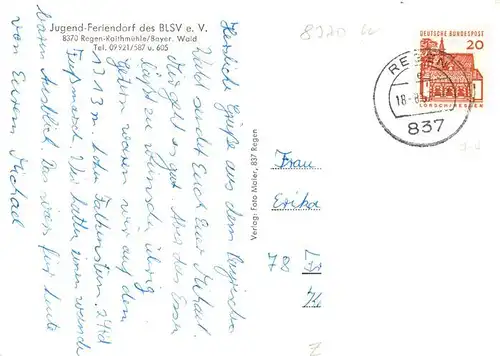 Jugend-Feriendorf des BLSV e. V.
8370 Regen-Raithmühle/Bayer. Wald
Tel. 09921/587 u. 605
Herzliche Grüße aus dem
Wald sendet Euch Euer Michael.
Mir geht es gut. Das Essen
läßt zu wünschen übrig.
Gestern waren wir auf dem
1313 m. hohen Falkenstein. 24 km
Fußmarsch. Wir hatten einen
Ausblick. Das wär's für heute
von Eurem Michael
Verlag: Foto Maier, 837 Regen
DEUTSCHE BUNDESPOST
20
LORSCH/HESSEN
REGEN
18.-8.
837
Frau
Erika
78